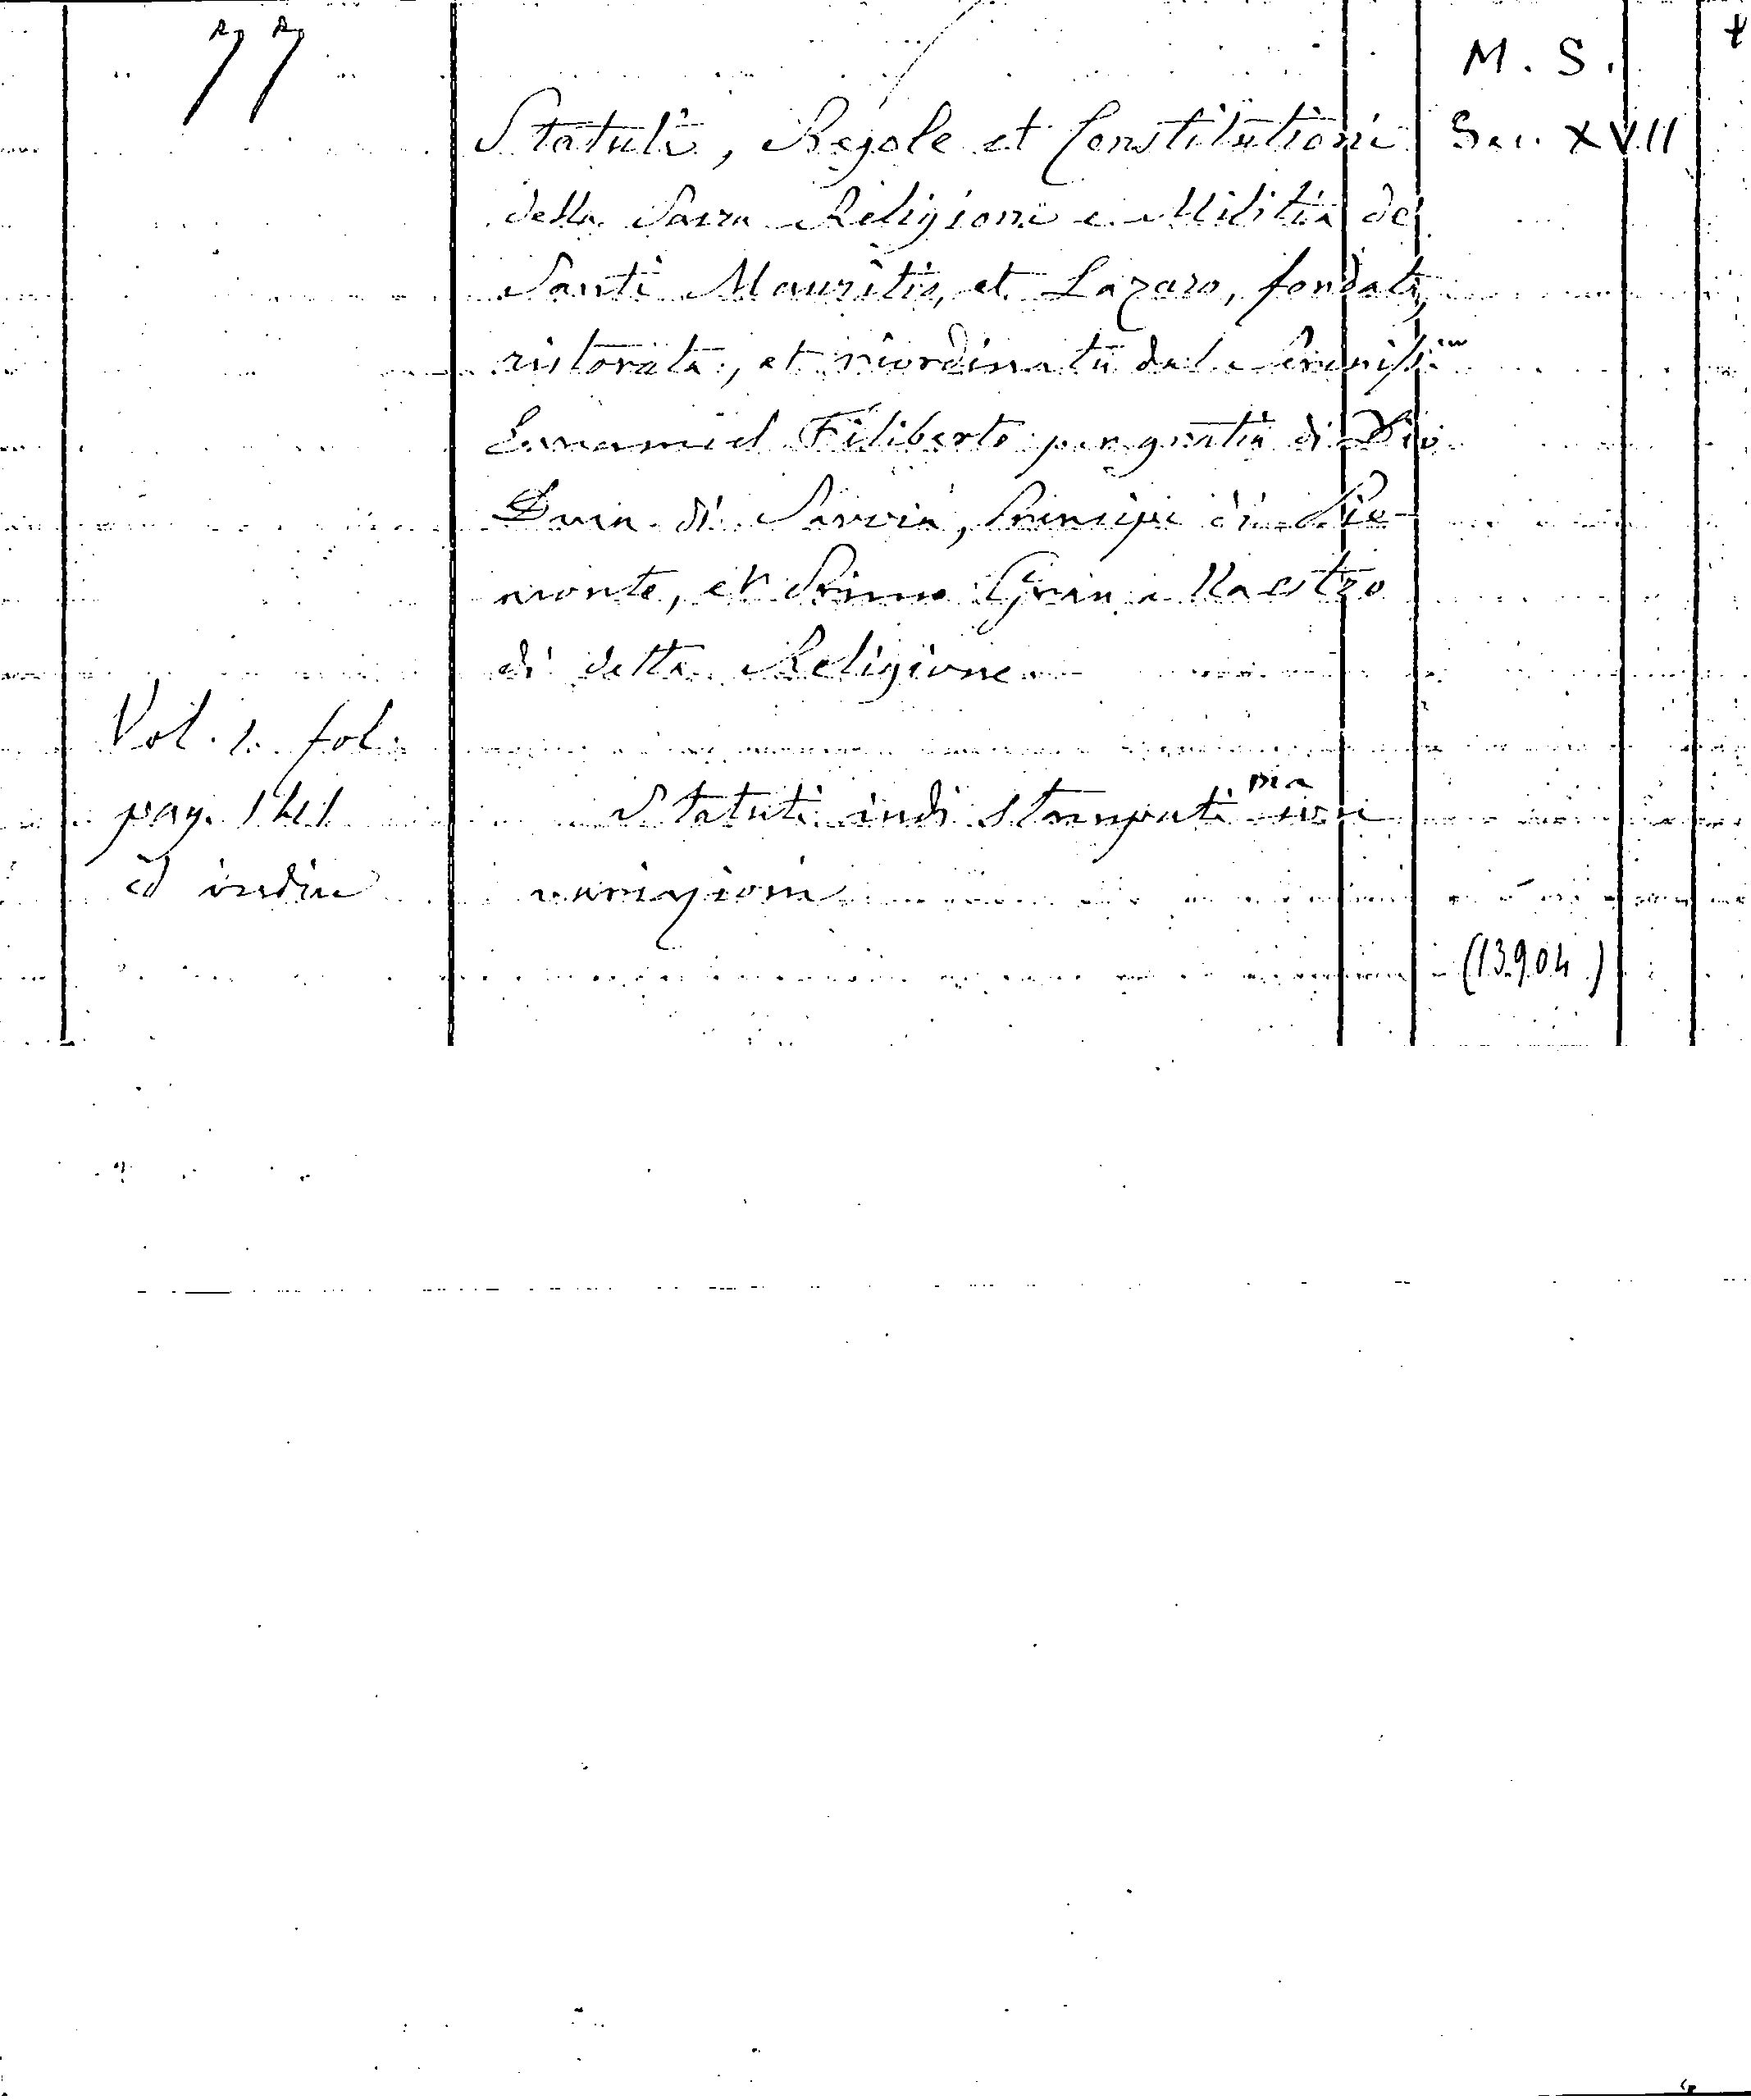 77
M. S.
Statuti, Regole et Constitutioni
Sec. XVII
della Sacra Religione e Militia de
Santi Mauritio, et Lazaro, fondata,
ristorata, et riordinata dal Sereniss.mo
Emanuel Filiberto per gratia di Dio
Duca di Savoia, Principe di Pie-
monte, et Primo Gran Maestro
di detta Religione
Vol. 1. fol.
pag. 141
ed indice
Statuti indi stampati ma con
variazioni
(13904)